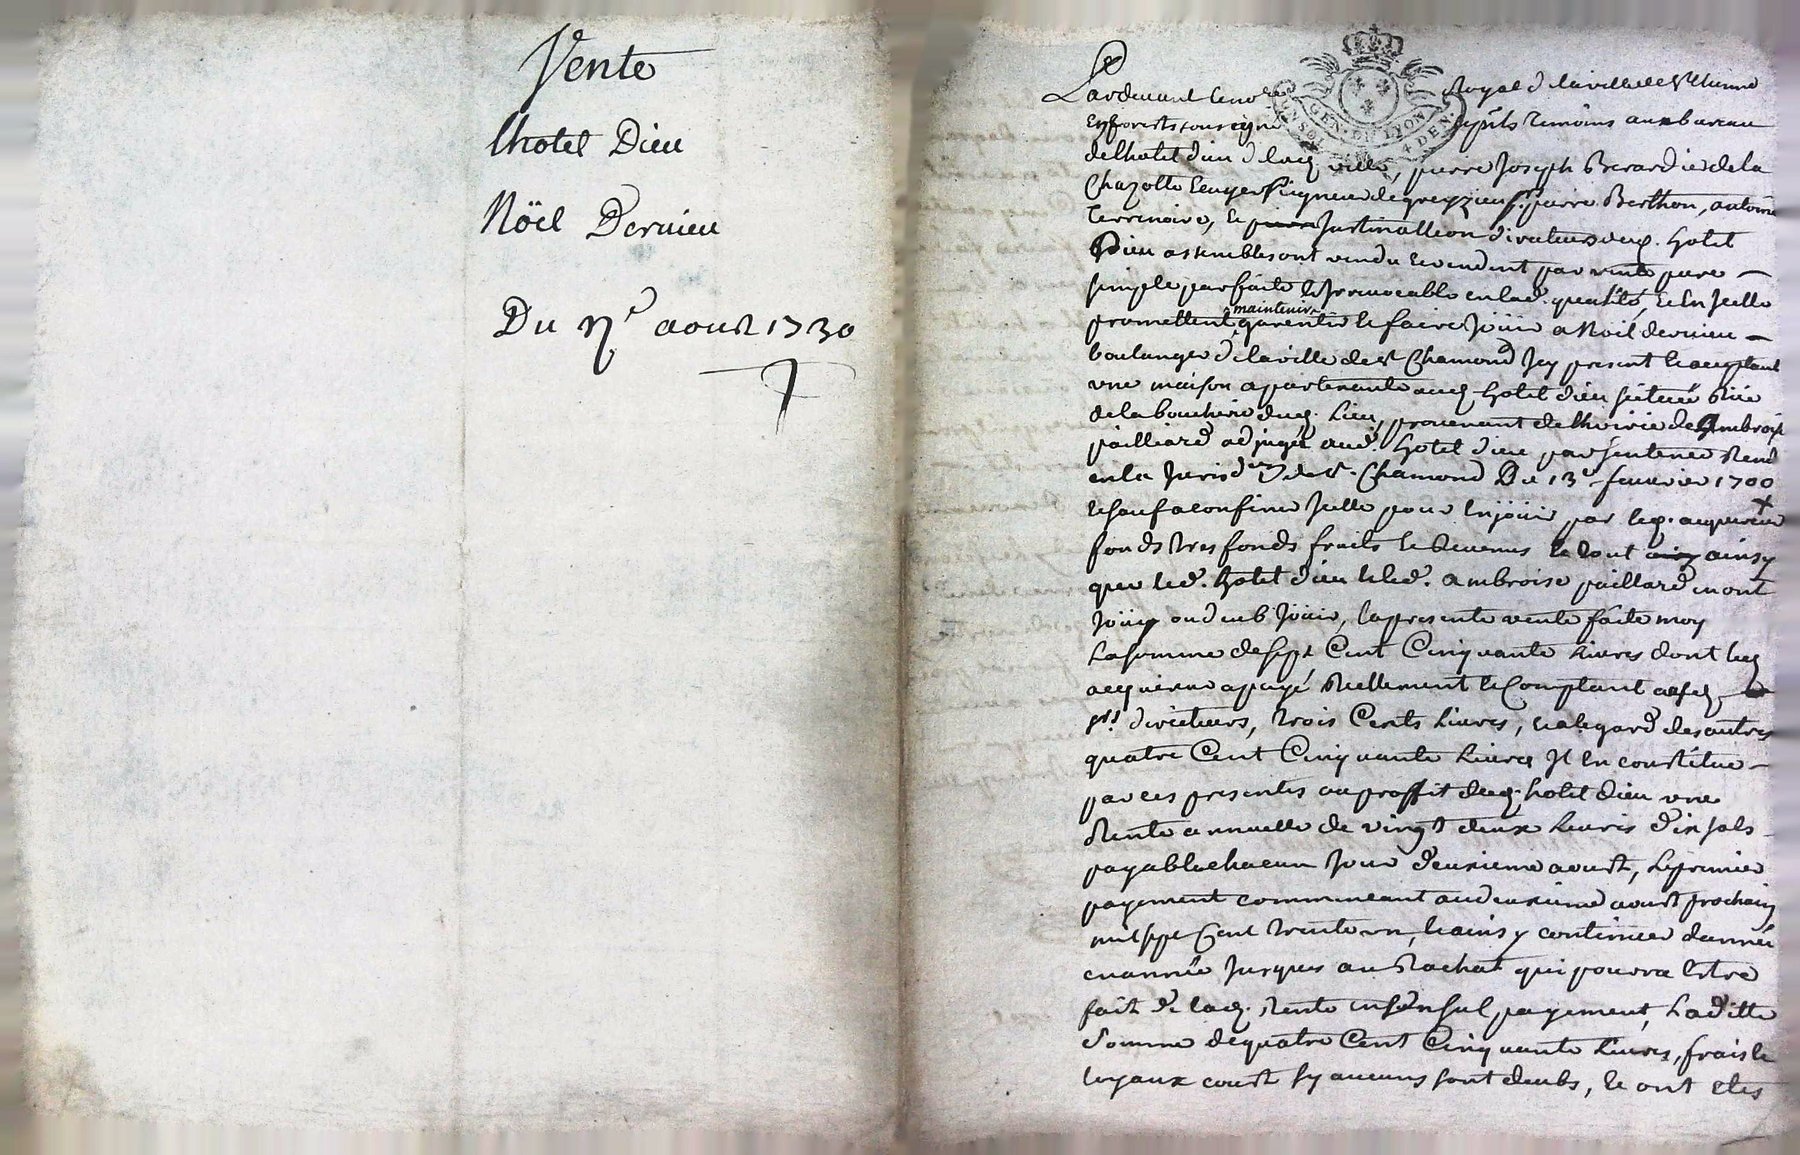 Vente
lhotel Dieu
Nöel Dernieu
Du 2e aoust 1730
Pardevant le no.re Royal de la ville de St Etienne
En forests soussigné tesmoins au bureau
de lhotel dieu de lad. ville, pierre Joseph Berardie de la
Chazotte Ecuyer seigneur de greyzieu Srs. pierre Berthon, antoine
Terrenoire, et Just Mallion directeurs dud. hotel
Dieu assemblés ont vendu et vendent par vente pure
simple parfaite et Jrrevocable en lad. qualité, et En Jcelle
maintenir
promettent garentir et faire Joüir a Noïl dernieu
boulanger de la ville de St Chamond Jcy present et acceptant
une maison apartenante aud. hotel dieu scituée Rüe
de la boucherie dud. Lieu, provenant de lhoirie de Ambroise
pailliard adjugée aud. hotel dieu par sentence Rend
en la Jurisd.on de St. Chamond Du 13e. feuvrier 1700
et sauf a confiner Jcelle pour En joüir par led. acquereur
fonds tres fonds fruits et Revenus le tout ainsy
que led. hotel dieu et led. ambroise paillard en ont
joüy ou deub Joüir, la presente vente faite moy
La somme de sept Cent Cinquante Livres dont led.
acquereur a payé Reellement et Comptant
srs. directeurs, trois Cents Livres, et a legard des autres
quatre Cent Cinquante Livres Jl En constitue
par ces presentes au proffit dud. hotel dieu une
Rente annuelle de vingt deux Livres dix sols
payable chacun Jour deuxieme aoust, Le premier
payement commencant au deuxieme aoust prochain
mil sept Cent trente un, et ainsy continuer dannée
en année Jusques au Rachat qui pourra Estre
fait de lad. Rente en un seul payement, Laditte
Somme de quatre Cent Cinquante Livres, frais et
loyaux coust sy aucuns sont deubs, et ont etes